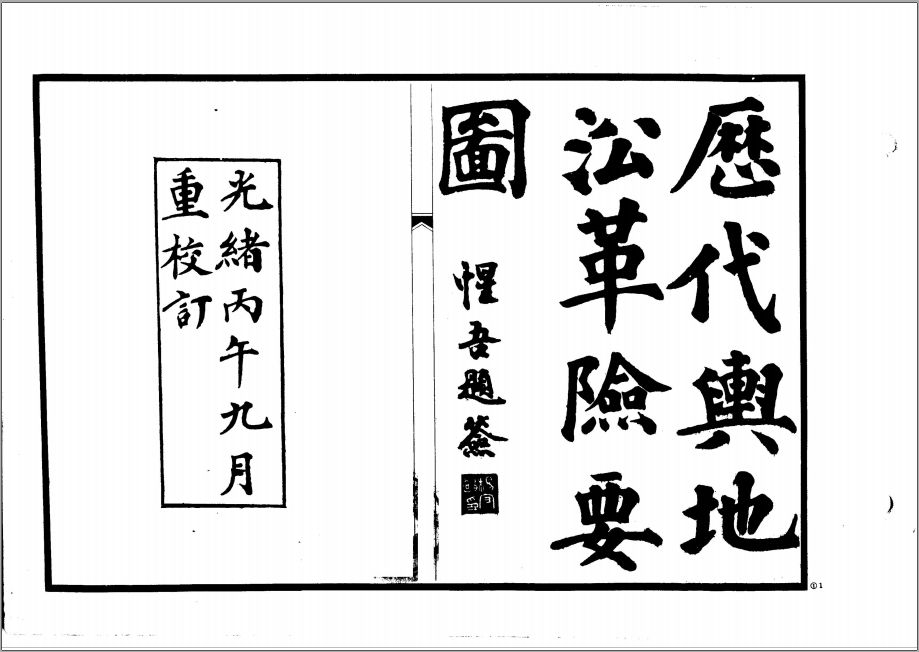 歷代輿地
沿革險要
圖
惺吾題簽
光緒丙午九月
重校訂
①1